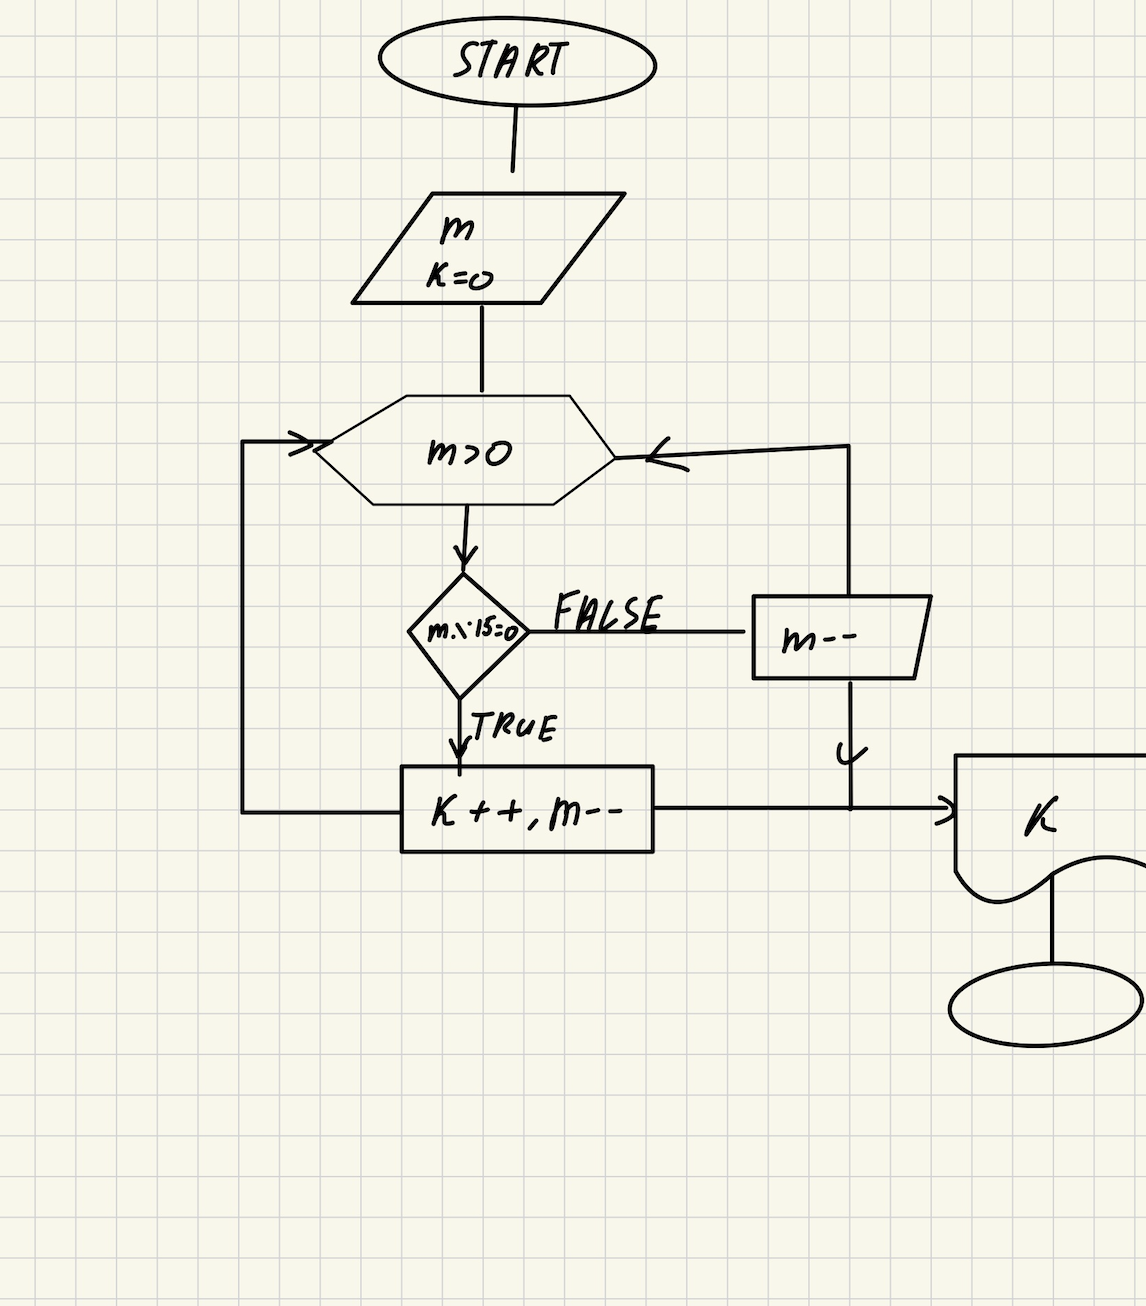 START
m
K=0
m>0
m.\'15=0
FALSE
m--
TRUE
K++,m--
K